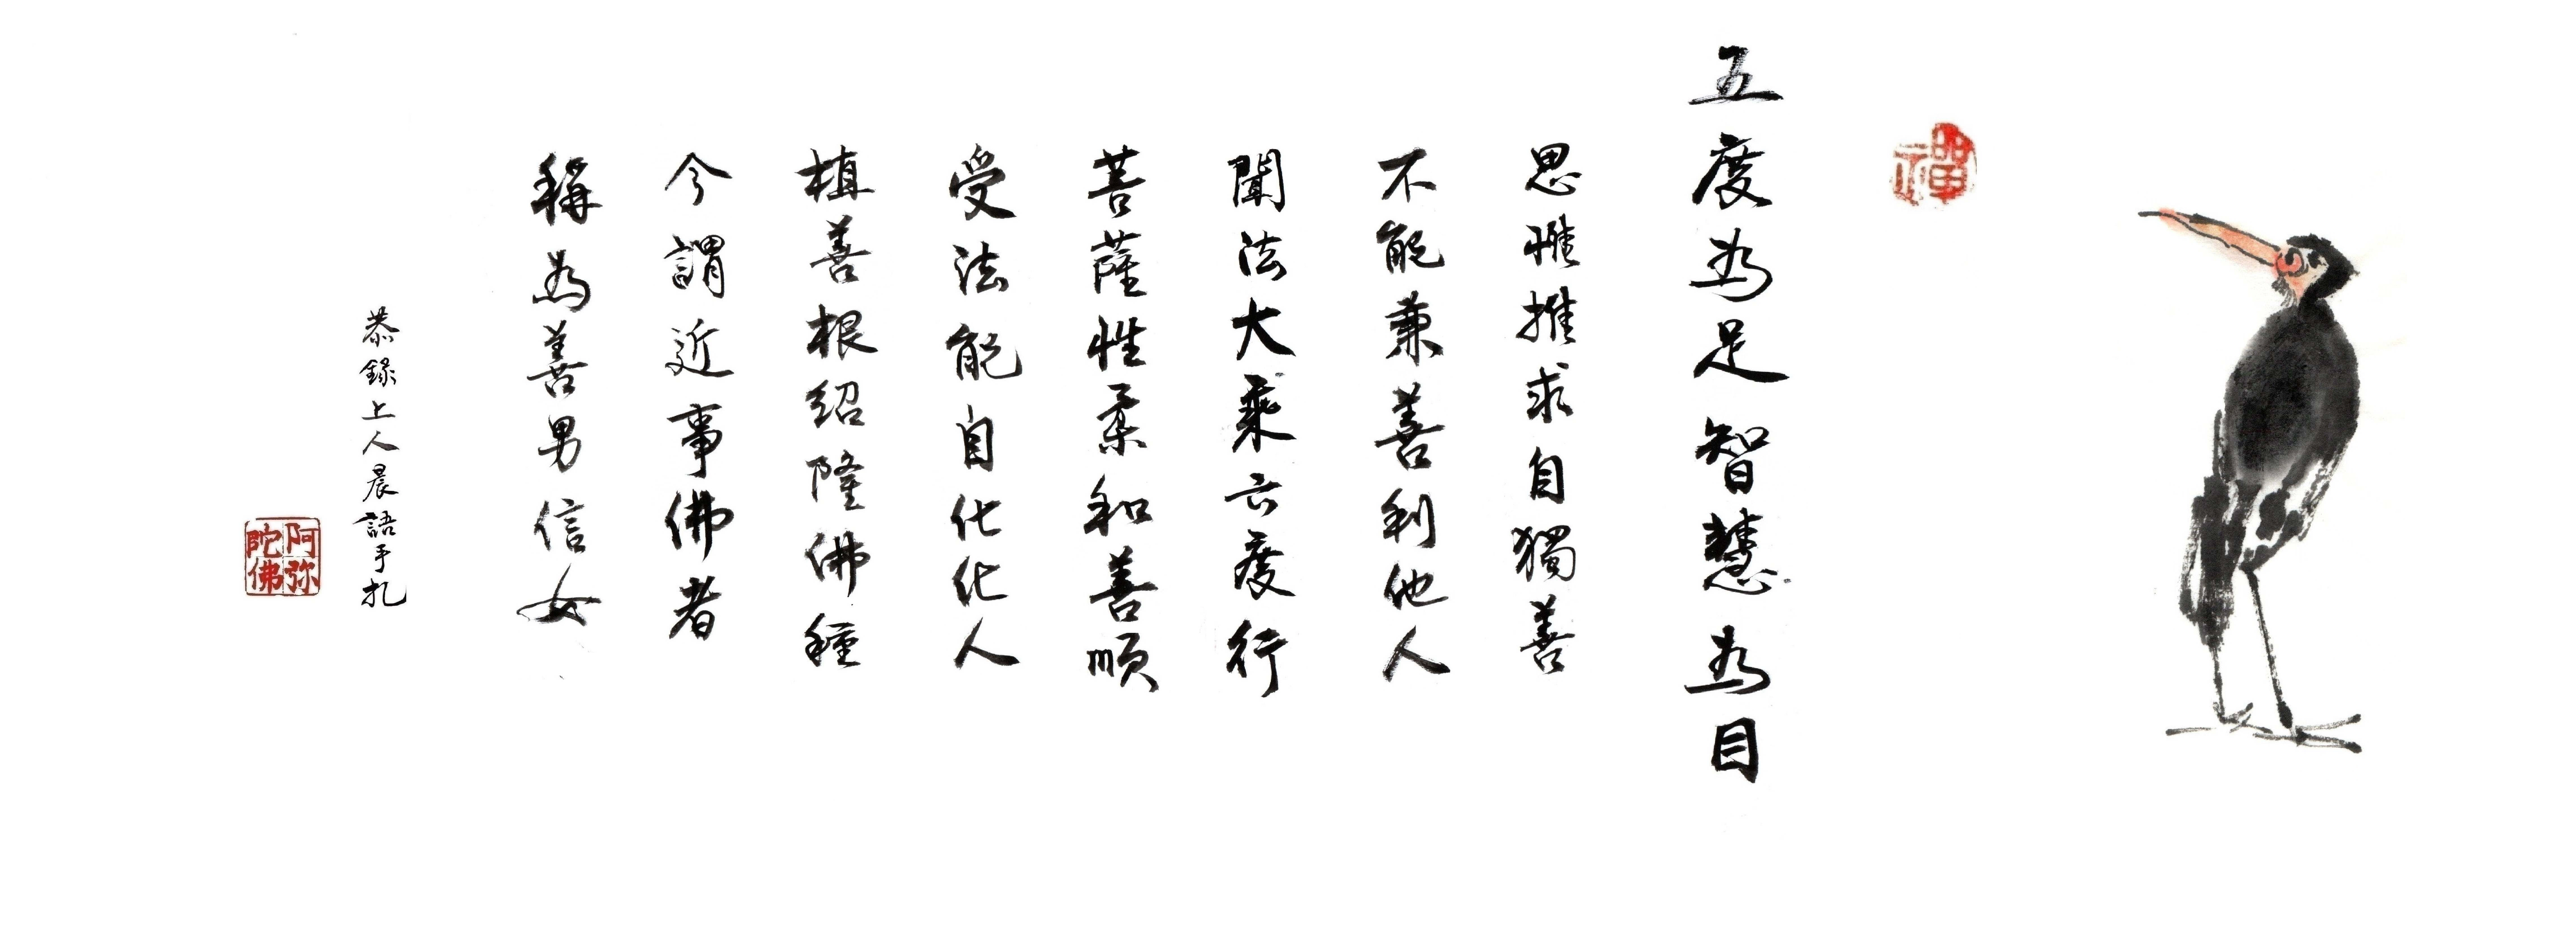 禪
五度為足智慧為目
思惟推求自獨善
不能兼善利他人
聞法大乘六度行
菩薩性柔和善順
受法能自化化人
植善根紹隆佛種
今謂近事佛者
稱為善男信女
恭錄上人晨語手札
阿弥陀佛